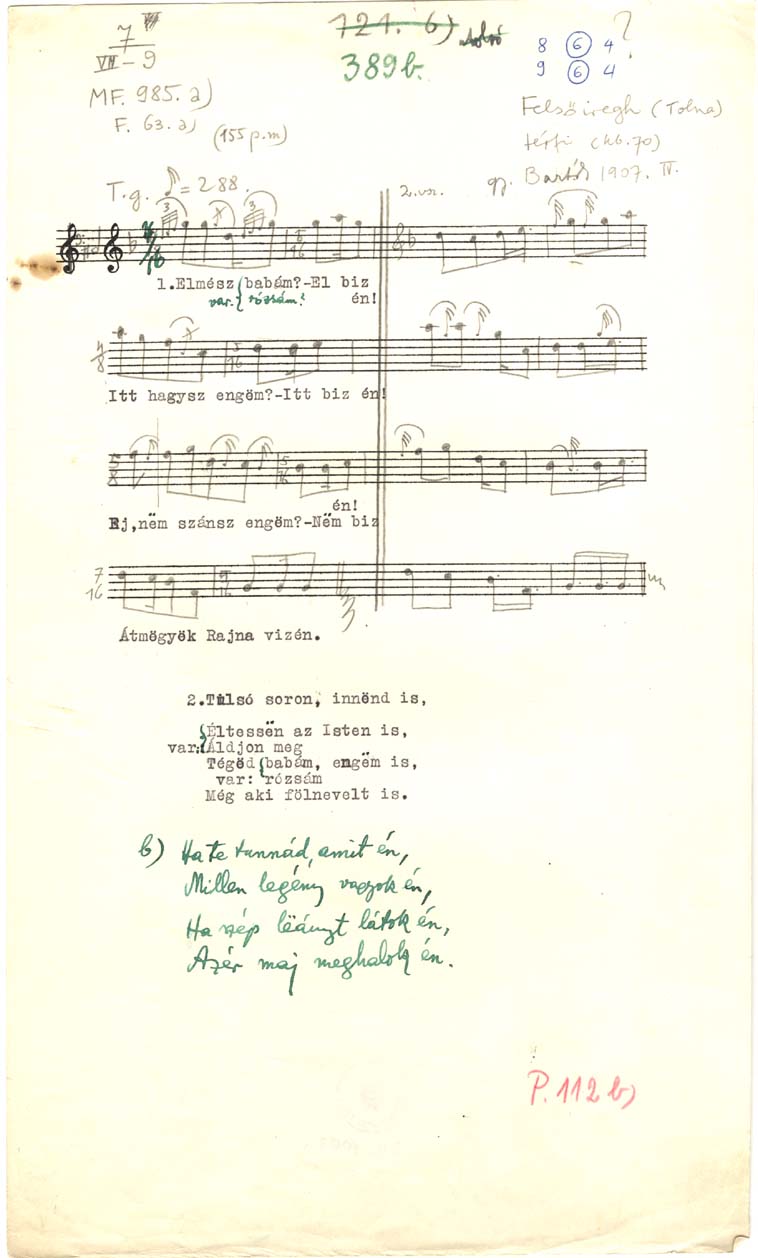 7
VII - 9
MF. 985. a)
F. 63. a)
(155 p.m)
121. b) utolsó
389b.
8 6 4 ?
9 6 4
Felsőiregh (Tolna)
férfi (kb. 70)
gy. Bartók 1907. IV.
T.g. ♪ = 288.
2. vsz.
1.Elmész babám?-El biz
var. rózsám? én!
Itt hagysz engöm?-Itt biz én!
én!
Ej,nëm szánsz engöm?-Nëm biz
Átmögyök Rajna vizén.
2.Tulsó soron, innënd is,
Éltessën az Isten is,
var: Áldjon meg
Tégöd babám, engëm is,
var: rózsám
Még aki fölnevelt is.
b) Ha te tunnád, amit én,
Millen legény vagyok én,
Ha szép lëányt látok én,
Azér maj meghalok én.
P. 112 b)